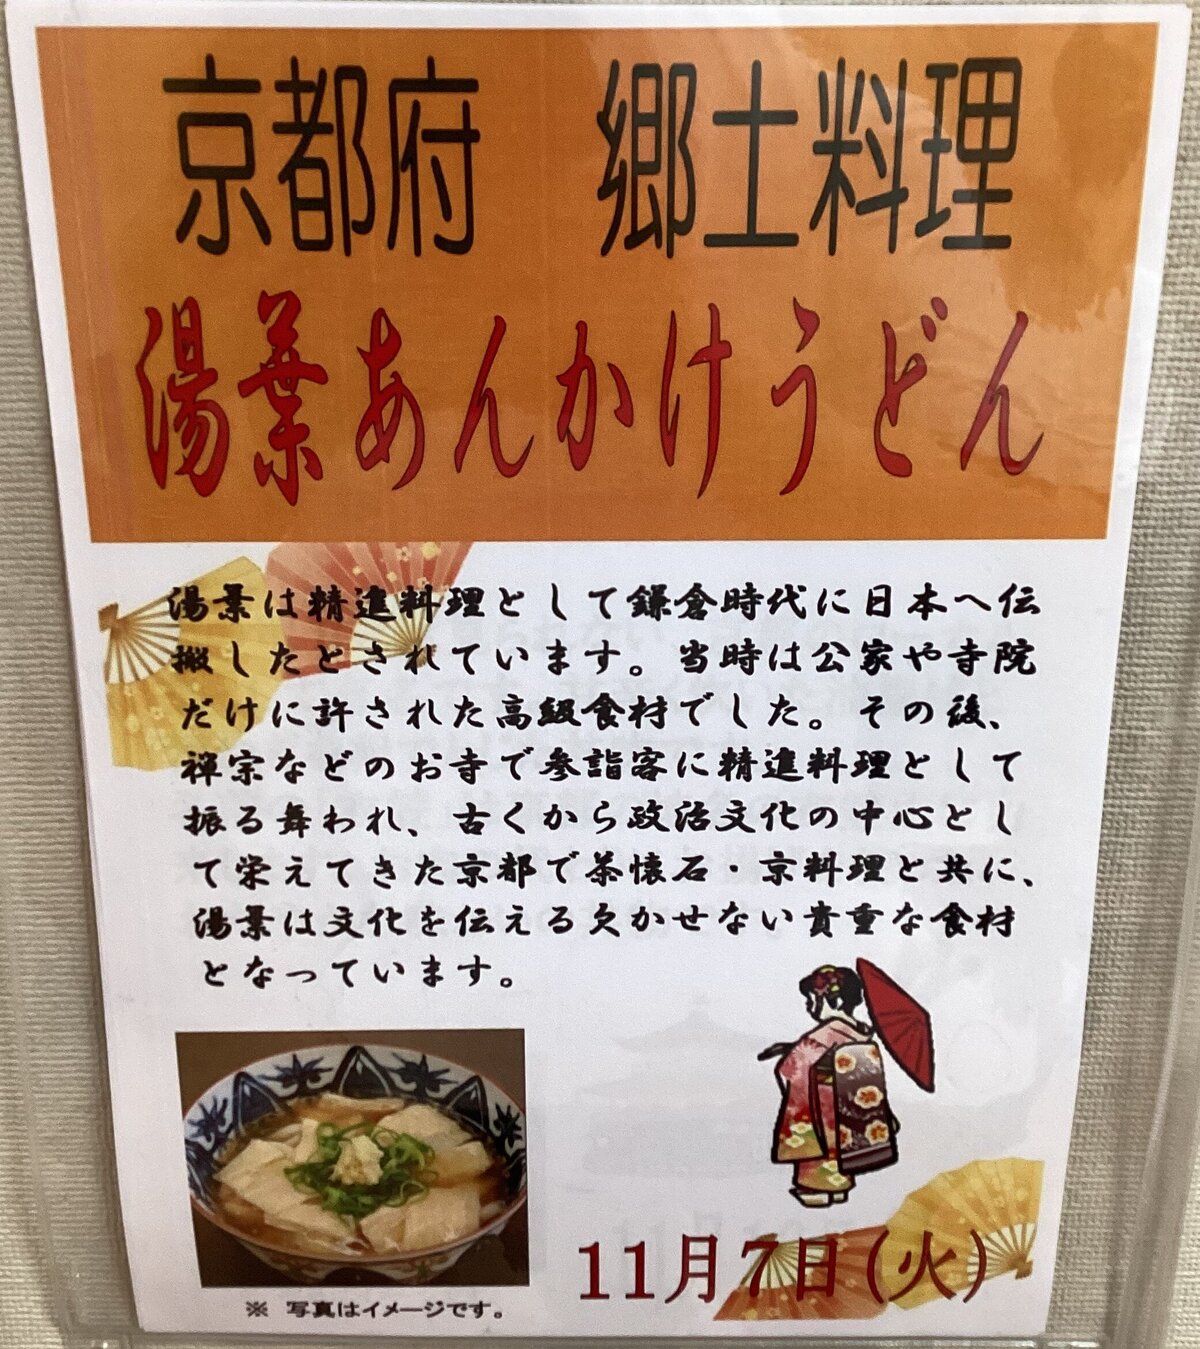 京都府　郷土料理
湯葉あんかけうどん
湯葉は精進料理として鎌倉時代に日本へ伝
搬したとされています。当時は公家や寺院
だけに許された高級食材でした。その後、
禅宗などのお寺で参詣客に精進料理として
振る舞われ、古くから政治文化の中心とし
て栄えてきた京都で茶懐石・京料理と共に、
湯葉は文化を伝える欠かせない貴重な食材
となっています。
※ 写真はイメージです。
11月7日(火)